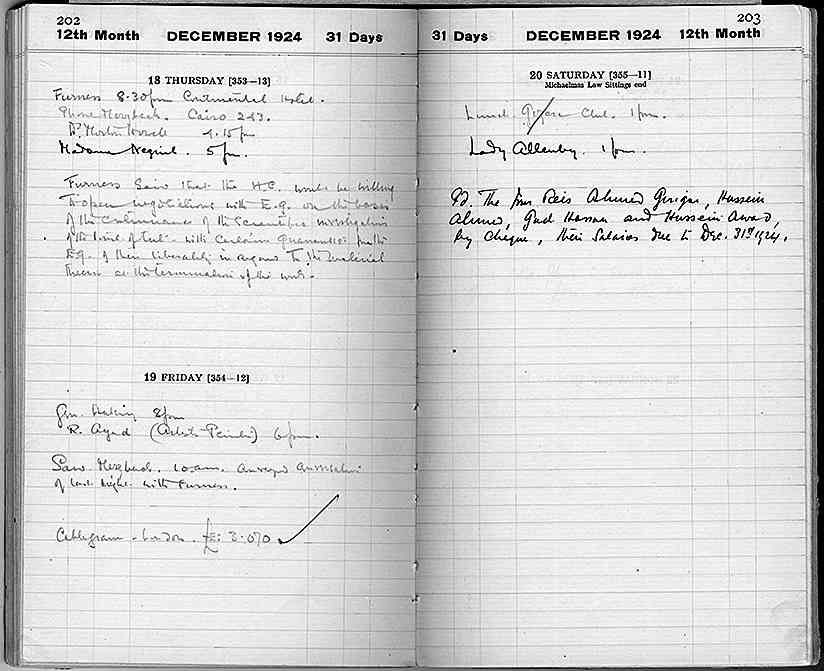 202
12th Month DECEMBER 1924 31 Days
18 THURSDAY [353—13]
Furness 8.30pm Continental Hotel.
Phone Merzbach. Cairo 243.
Dr. Morton Howell 4.15pm
Madame Negrint. 5pm.
Furness saw that the H.C. would be willing
to open negotiations with E.G. on the basis
of the continuance of the scientific investigation
of the tomb of Tut. with
E.G. of their liberality in regard to the material
therein at the termination of the work.
19 FRIDAY [354—12]
Gen. Haking 8pm
R. Ayad (Artist-Painter) 6pm.
Saw Merzbach. 10.am.
of last night with Furness.
Cablegram - London. £E: 3.070
203
31 Days DECEMBER 1924 12th Month
20 SATURDAY [355—11]
Michaelmas Law Sittings end
Lunch Club. 1pm.
Lady Allenby. 1pm.
Pd. The four Reis Ahmed Gerigar, Hussein
Ahmed, Gad Hassan and Hussein Awad,
by cheque, their Salaries due to Dec. 31st 1924.